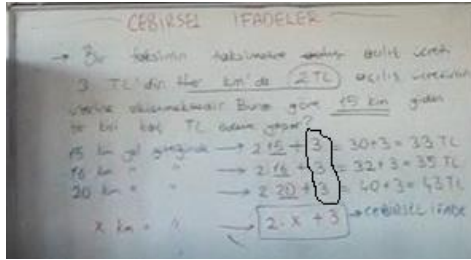 CEBİRSEL İFADELER
→ Bir taksinin taksimetre açılış ücreti
3 TL'dir. Her km'de 2TL açılış ücretinin
üzerine Buna göre 15 km giden
bir kaç TL ödeme yapar?
15 km yol gittiğinde → 2.15 + 3 = 30+3 = 33 TL
16 km " " → 2.16 + 3 = 32+3 = 35 TL
20 km " " → 2.20 + 3 = 40+3 = 43 TL
x km " " → 2.x + 3 → CEBİRSEL İFADE